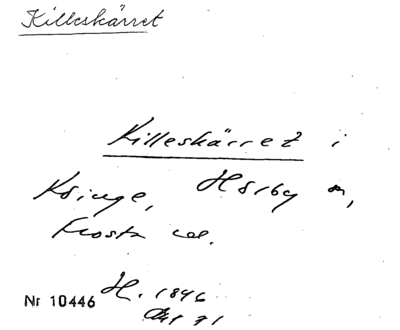 Killeskärret
Killeskärret i
Kringe, Hörby sn,
Frosta hd.
Nr 10446 H. 1846
Akt 71